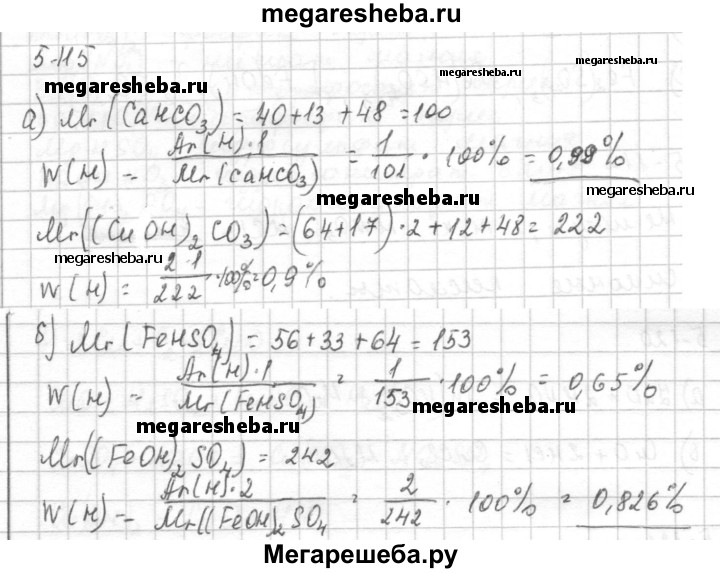 megaresheba.ru
5-115
megaresheba.ru megaresheba.ru
а) Mr(CaHCO₃) = 40+13+48=100
W(H) = Ar(H)·1 / Mr(CaHCO₃) = 1/101 · 100% = 0,99%
megaresheba.ru megaresheba.ru
Mr((CuOH)₂CO₃) = (64+17)·2+12+48= 222
megaresheba.ru
W(H) = 2·1/222 ·100%=0,9%
б) Mr(FeHSO₄) = 56+33+64=153
W(H) = Ar(H)·1 / Mr(FeHSO₄) = 1/153 · 100% = 0,65%
megaresheba.ru megaresheba.ru
Mr((FeOH)₂SO₄) = 242
W(H) = Ar(H)·2 / Mr((FeOH)₂SO₄ = 2/242 · 100% = 0,826%
Мегарешеба.ру